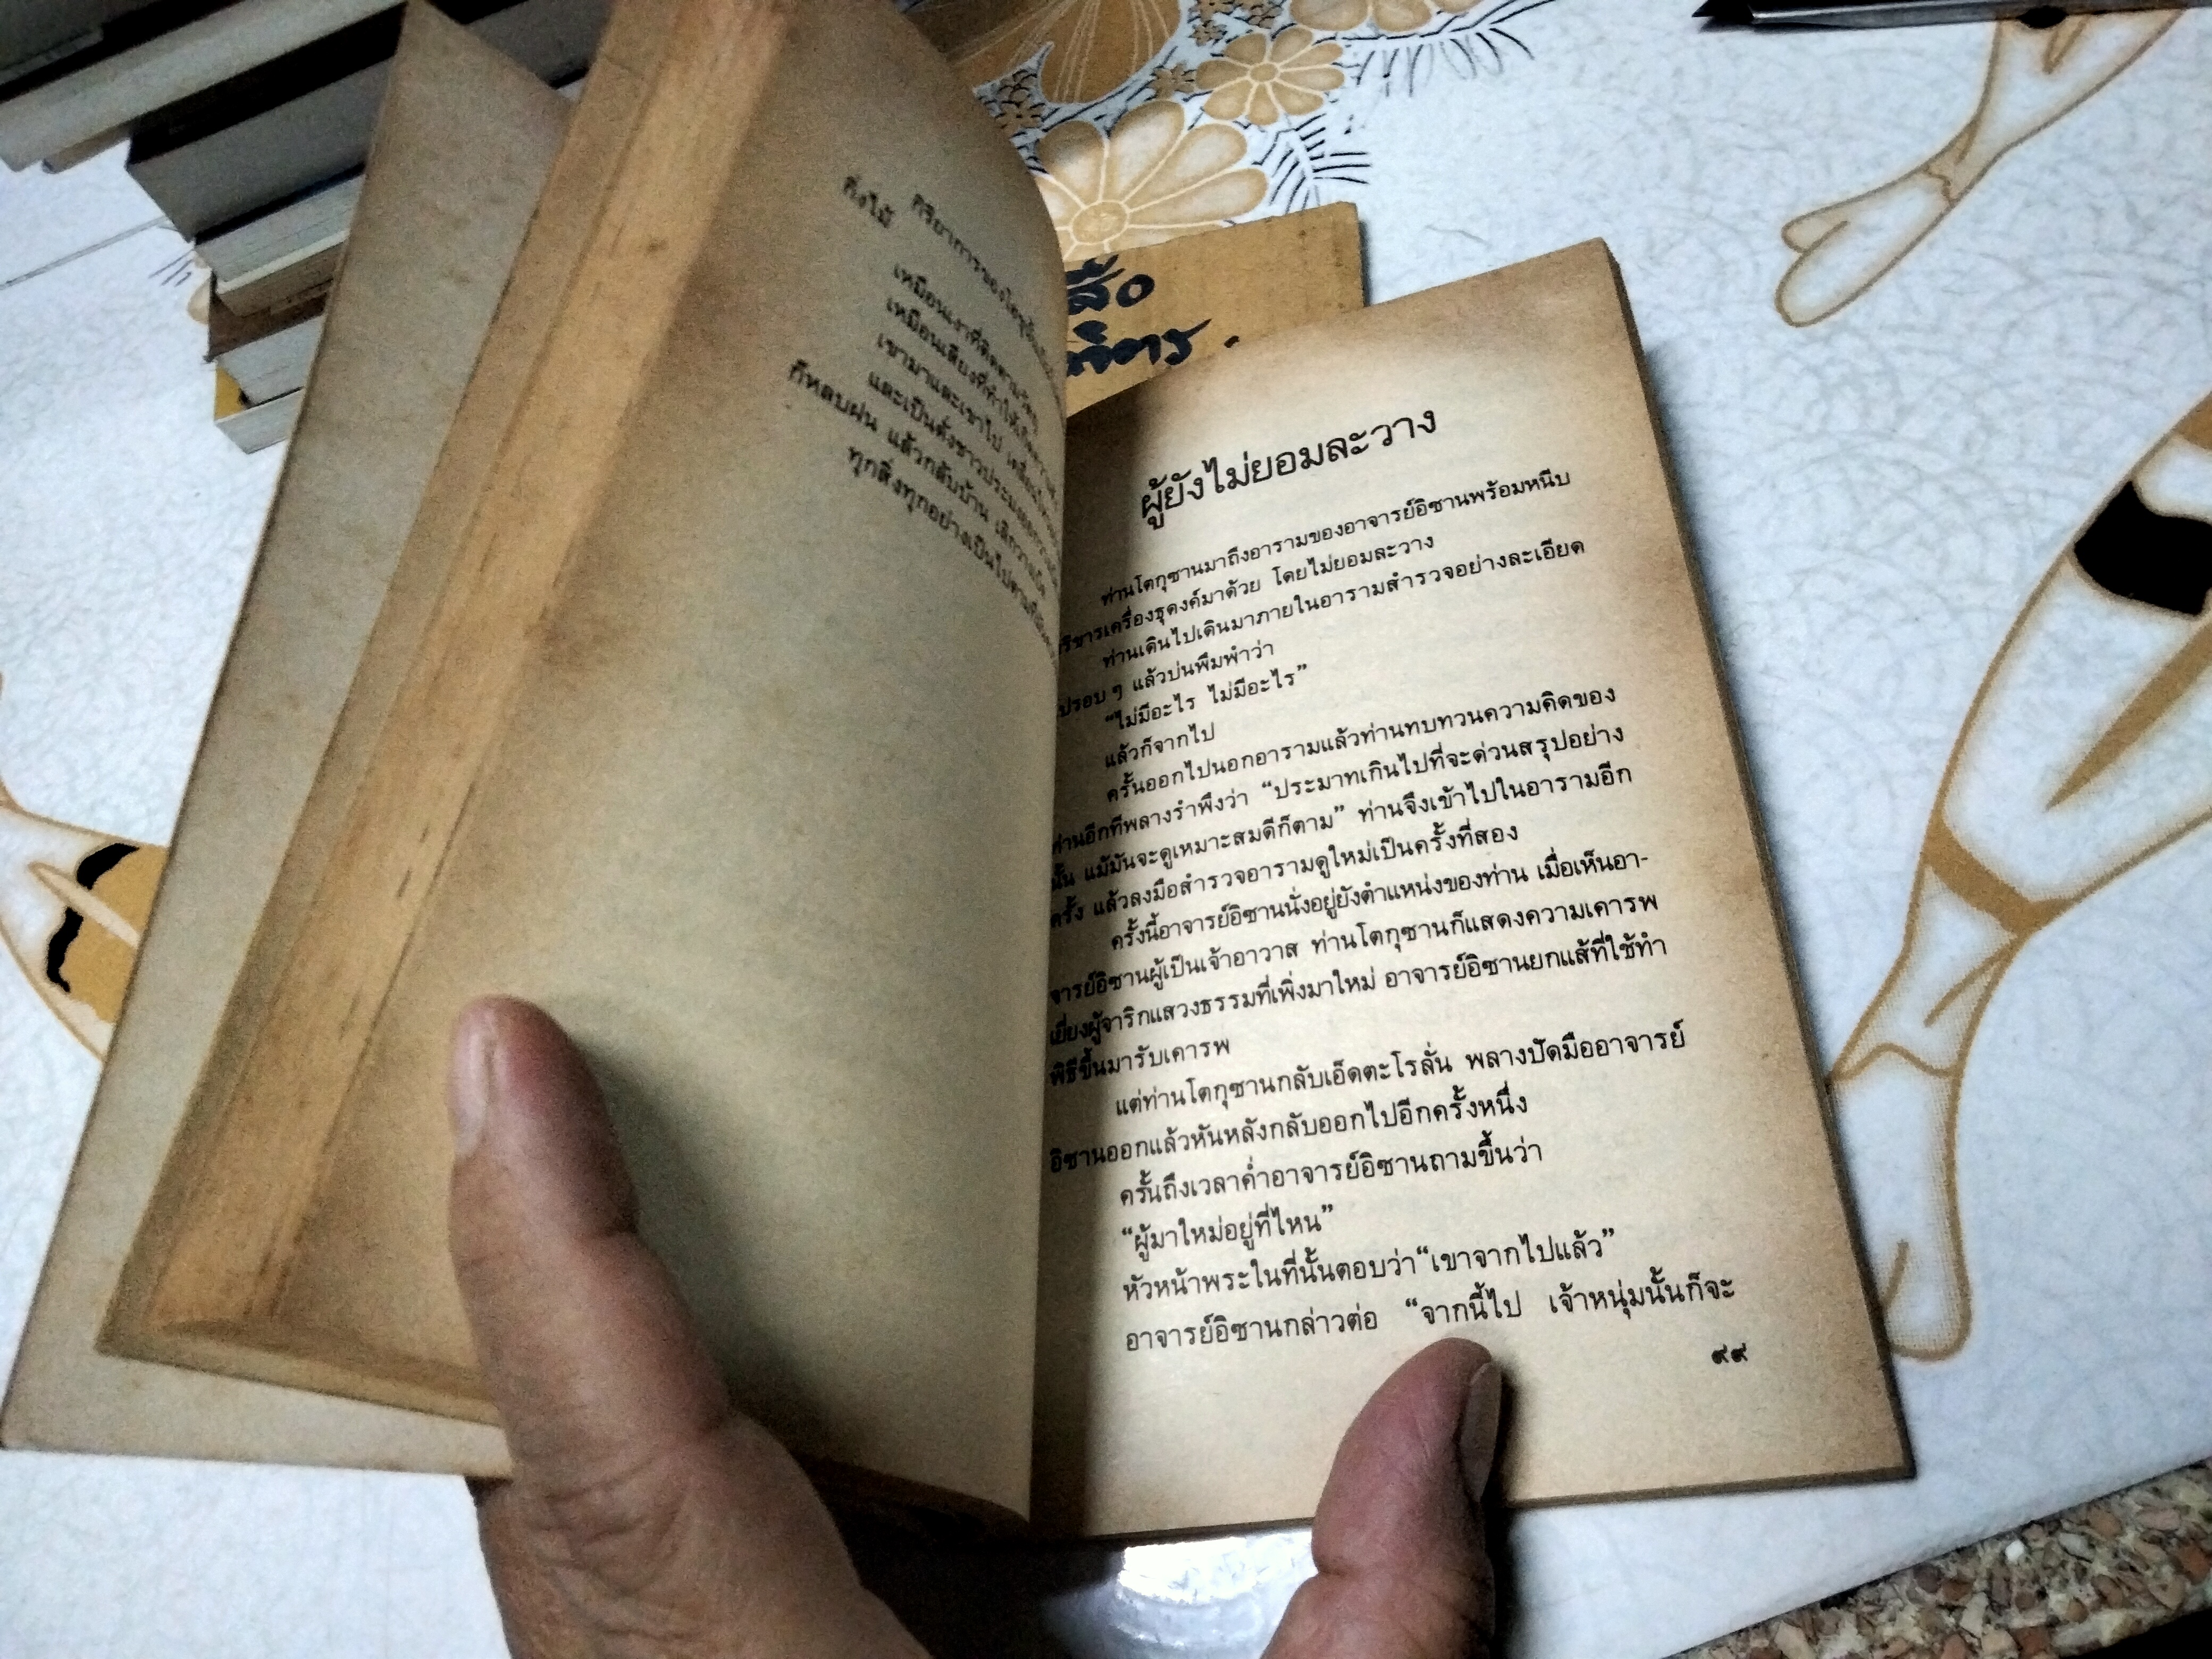 กิริยาการของ
กิ่งไม้
เหมือนเงาที่ติดตามวัตถุ
เหมือนเสียงที่ทำให้เกิด
เขามาและเขาไป
และเป็นดั่งชาวประมง
ก็หลบฝน แล้วกลับบ้าน
ทุกสิ่งทุกอย่างเป็นไปตาม
ผู้ยังไม่ยอมละวาง
ท่านโตกุซานมาถึงอารามของอาจารย์อิซานพร้อมหนีบ
บริขารเครื่องธุดงค์มาด้วย โดยไม่ยอมละวาง
ท่านเดินไปเดินมาภายในอารามสำรวจอย่างละเอียด
ไปรอบ ๆ แล้วบ่นพึมพำว่า
“ไม่มีอะไร ไม่มีอะไร”
แล้วก็จากไป
ครั้นออกไปนอกอารามแล้วท่านทบทวนความคิดของ
ท่านอีกทีพลางรำพึงว่า “ประมาทเกินไปที่จะด่วนสรุปอย่าง
นั้น แม้มันจะดูเหมาะสมดีก็ตาม” ท่านจึงเข้าไปในอารามอีก
ครั้ง แล้วลงมือสำรวจอารามดูใหม่เป็นครั้งที่สอง
ครั้งนี้อาจารย์อิซานนั่งอยู่ยังตำแหน่งของท่าน เมื่อเห็นอา-
จารย์อิซานผู้เป็นเจ้าอาวาส ท่านโตกุซานก็แสดงความเคารพ
เยี่ยงผู้จาริกแสวงธรรมที่เพิ่งมาใหม่ อาจารย์อิซานยกแส้ที่ใช้ทำ
พิธีขึ้นมารับเคารพ
แต่ท่านโตกุซานกลับเอ็ดตะโรลั่น พลางปัดมืออาจารย์
อิซานออกแล้วหันหลังกลับออกไปอีกครั้งหนึ่ง
ครั้นถึงเวลาค่ำอาจารย์อิซานถามขึ้นว่า
“ผู้มาใหม่อยู่ที่ไหน”
หัวหน้าพระในที่นั้นตอบว่า“เขาจากไปแล้ว”
อาจารย์อิซานกล่าวต่อ “จากนี้ไป เจ้าหนุ่มนั้นก็จะ
๙๙